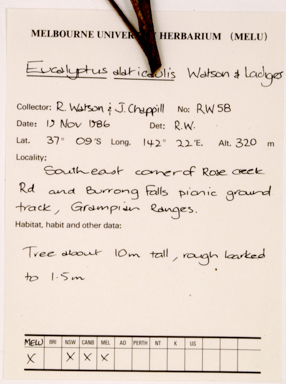 MELBOURNE UNIVERSITY HERBARIUM (MELU)
Eucalyptus alaticaulis Watson & Ladiges
Collector: R. Watson & J. Chappill No: RW58
Date: 19 Nov 1986 Det: R.W.
Lat. 37° 09'S Long. 142° 22'E. Alt. 320 m
Locality:
South east corner of Rose creek
Rd and Burrong Falls picnic ground
track, Grampian Ranges.
Habitat, habit and other data:
Tree about 10m tall, rough barked
to 1.5m
MELU BRI NSW CANB MEL AD PERTH NT K US
X X X X